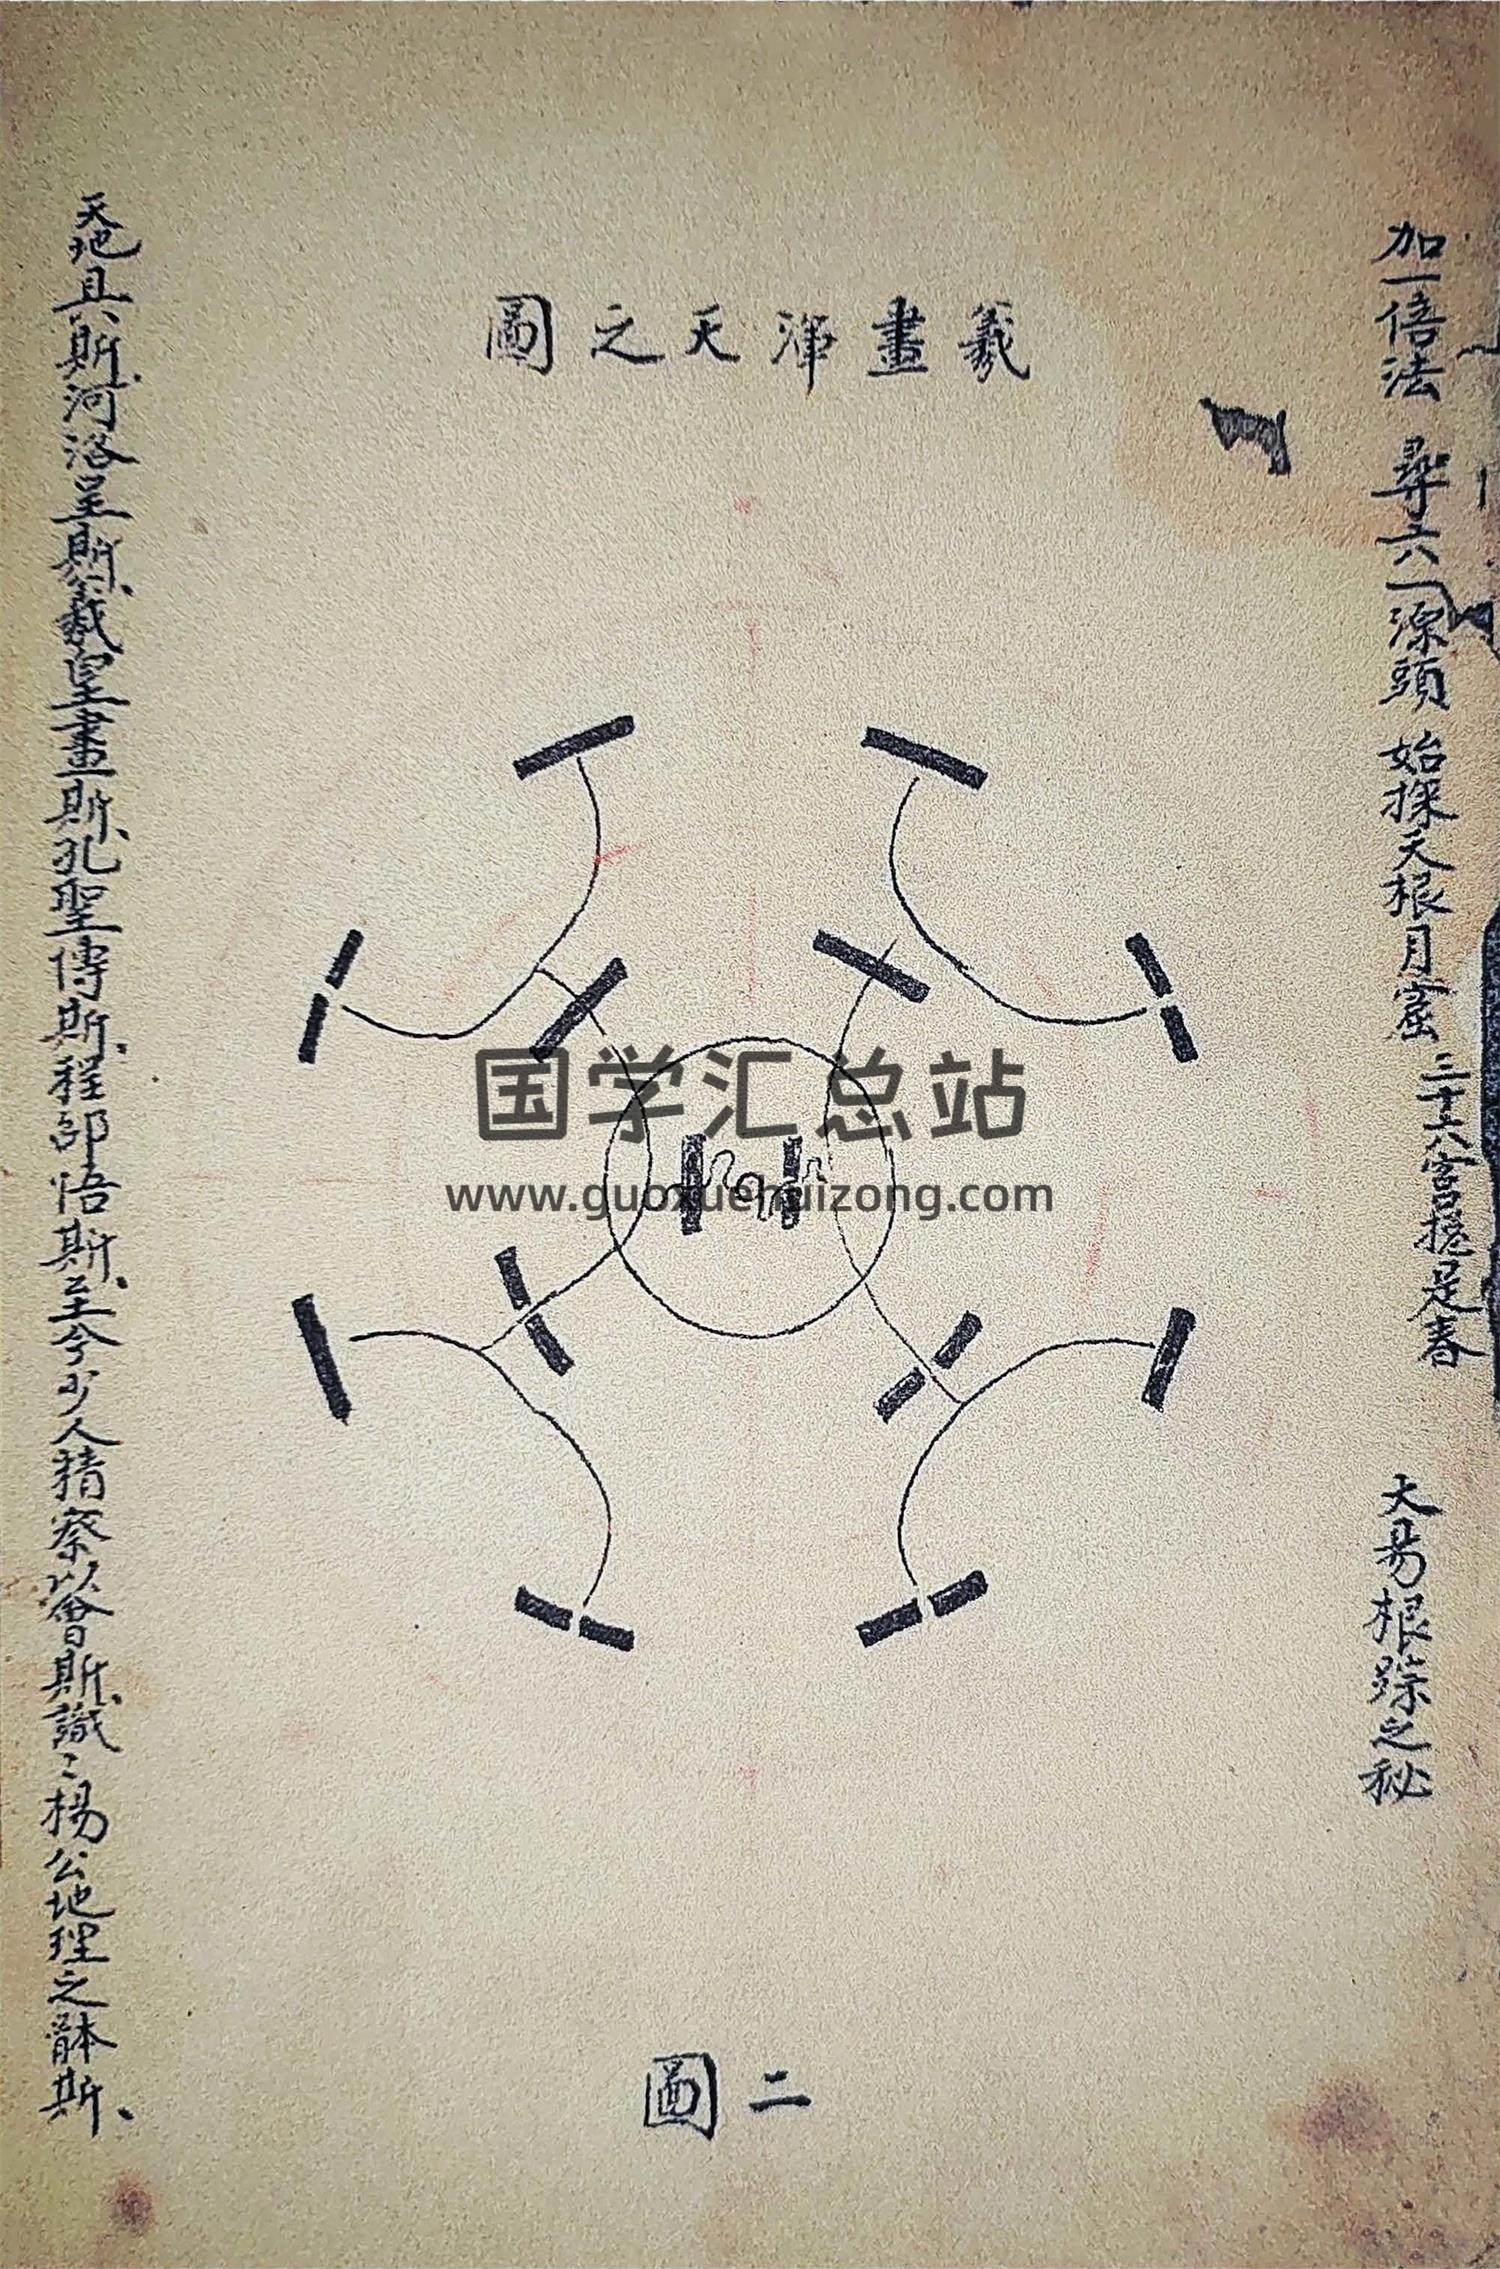 加一倍法 尋六一源頭 始探天根月窟 三十六宮摠是春 大易根踪之秘
羲畫渾天之圖
国学汇总站
www.guoxuehuizong.com
二圖
天地具斯、河洛呈斯、羲皇畫斯、孔聖傳斯、程邵悟斯、至今少人精察以會斯、識〻楊公地理之體斯、